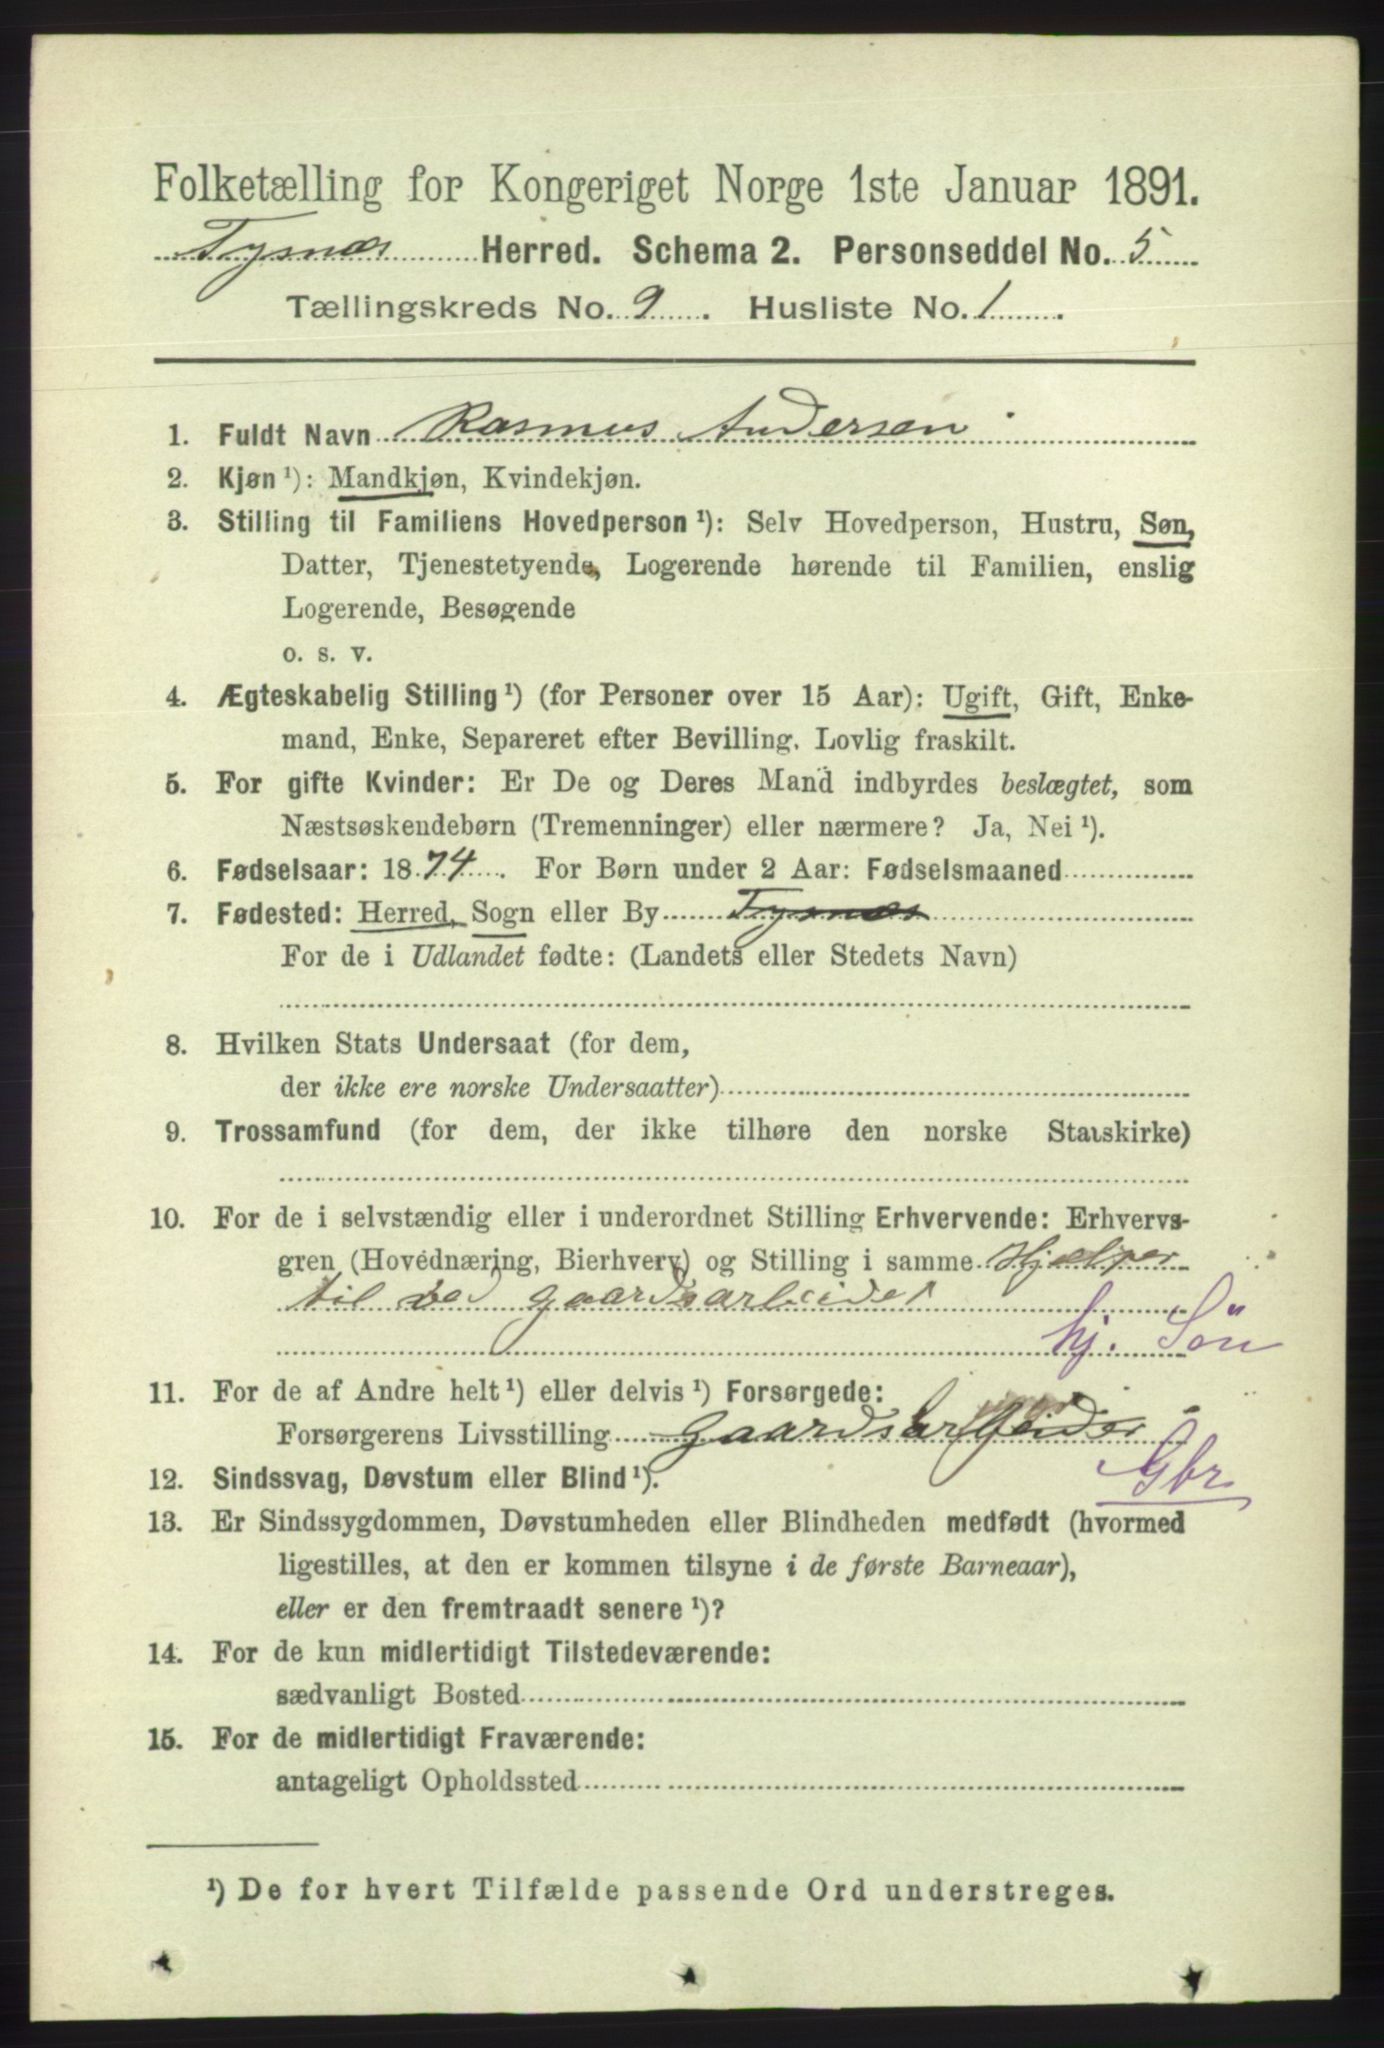 Folketælling for Kongeriget Norge 1ste Januar 1891.
Tysnæs Herred. Schema 2. Personseddel No. 5
Tællingskreds No. 9. Husliste No. 1.
1. Fuldt Navn Rasmus Andersen
2. Kjøn¹): Mandkjøn, Kvindekjøn.
3. Stilling til Familiens Hovedperson¹): Selv Hovedperson, Hustru, Søn,
Datter, Tjenestetyende, Logerende hørende til Familien, enslig
Logerende, Besøgende
o. s. v.
4. Ægteskabelig Stilling¹) (for Personer over 15 Aar): Ugift, Gift, Enke-
mand, Enke, Separeret efter Bevilling. Lovlig fraskilt.
5. For gifte Kvinder: Er De og Deres Mand indbyrdes beslægtet, som
Næstsøskendebørn (Tremenninger) eller nærmere? Ja, Nei¹).
6. Fødselsaar: 1874. For Børn under 2 Aar: Fødselsmaaned
7. Fødested: Herred, Sogn eller By Tysnæs
For de i Udlandet fødte: (Landets eller Stedets Navn)
8. Hvilken Stats Undersaat (for dem,
der ikke ere norske Undersaatter)
9. Trossamfund (for dem, der ikke tilhøre den norske Statskirke)
10. For de i selvstændig eller i underordnet Stilling Erhvervende: Erhvervs-
gren (Hovednæring, Bierhverv) og Stilling i samme Hjælper
til ved gaardsarbeidet
hj. Sön
11. For de af Andre helt¹) eller delvis¹) Forsørgede:
Forsørgerens Livsstilling gaardsarbeider
Gbr
12. Sindssvag, Døvstum eller Blind¹).
13. Er Sindssygdommen, Døvstumheden eller Blindheden medfødt (hvormed
ligestilles, at den er kommen tilsyne i de første Barneaar),
eller er den fremtraadt senere¹)?
14. For de kun midlertidigt Tilstedeværende:
sædvanligt Bosted
15. For de midlertidigt Fraværende:
antageligt Opholdssted
¹) De for hvert Tilfælde passende Ord understreges.